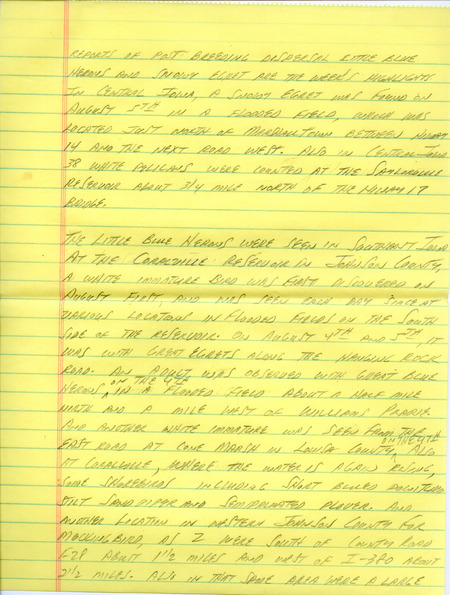 REPORTS OF POST BREEDING DISPERSAL LITTLE BLUE
HERONS AND SNOWY EGRET ARE THE WEEK'S HIGHLIGHTS
IN CENTRAL IOWA, A SNOWY EGRET WAS FOUND ON
AUGUST 5TH IN A FLOODED FIELD, WHICH WAS
LOCATED JUST NORTH OF MARSHALLTOWN BETWEEN HIWAY
14 AND THE NEXT ROAD WEST. ALSO IN CENTRAL IOWA
38 WHITE PELICANS WERE COUNTED AT THE SAYLORVILLE
RESERVOIR ABOUT 3/4 MILE NORTH OF THE HIWAY 17
BRIDGE.
THE LITTLE BLUE HERONS WERE SEEN IN SOUTHEAST IOWA
AT THE CORALVILLE RESERVOIR IN JOHNSON COUNTY,
A WHITE IMMATURE BIRD WAS FIRST DISCOVERED ON
AUGUST FIRST, AND WAS SEEN EACH DAY SINCE AT
VARIOUS LOCATIONS IN FLOODED FIELDS ON THE SOUTH
SIDE OF THE RESERVOIR. ON AUGUST 4TH AND 5TH, IT
WAS WITH GREAT EGRETS ALONG THE HANGING ROCK
ROAD. AN ADULT WAS OBSERVED WITH GREAT BLUE
HERONS ON THE 4TH IN A FLOODED FIELD ABOUT A HALF MILE
NORTH AND A MILE WEST OF WILLIAMS PRAIRIE
AND ANOTHER WHITE IMMATURE WAS SEEN FROM THE
EAST ROAD AT CONE MARSH IN LOUISA COUNTY ON THE 4TH, ALSO
AT CORALVILLE, WHERE THE WATER IS AGAIN RISING,
SOME SHOREBIRDS INCLUDING SHORT BILLED DOWITCHERS
STILT SANDPIPER AND SEMIPALMATED PLOVER. AND
ANOTHER LOCATION IN WESTERN JOHNSON COUNTY FOR
MOCKINGBIRD, AS 2 WERE SOUTH OF COUNTY ROAD
F28 ABOUT 1 1/2 MILES AND WEST OF I-380 ABOUT
2 1/2 MILES. ALSO IN THAT SAME AREA WERE A LARGE